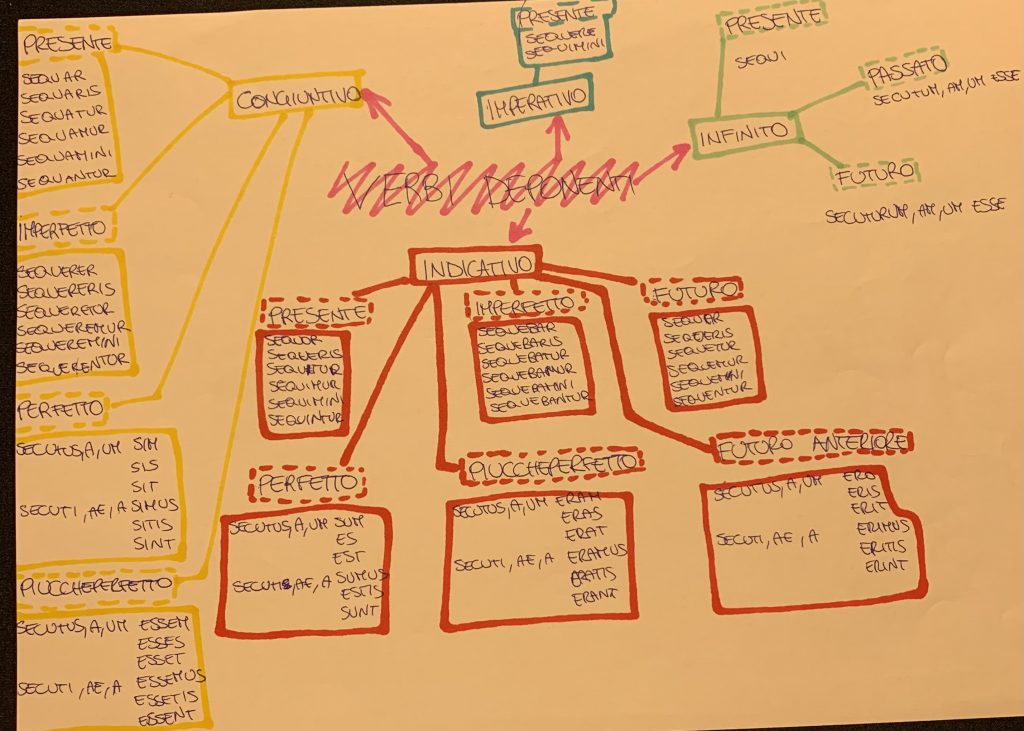 VERBI DEPONENTI
CONGIUNTIVO
PRESENTE
SEQUAR
SEQUARIS
SEQUATUR
SEQUAMUR
SEQUAMINI
SEQUANTUR
IMPERFETTO
SEQUERER
SEQUERERIS
SEQUERETOR
SEQUEREMUR
SEQUEREMINI
SEQUERENTOR
PERFETTO
SECUTUS, A, UM SIM
SIS
SIT
SECUTI, AE, A SIMUS
SITIS
SINT
PIUCCHEPERFETTO
SECUTUS, A, UM ESSEM
ESSES
ESSET
SECUTI, AE, A ESSEMUS
ESSETIS
ESSENT
IMPERATIVO
PRESENTE
SEQUERE
SEQUIMINI
INFINITO
PRESENTE
SEQUI
PASSATO
SECUTUM, AM, UM ESSE
FUTURO
SECUTURUM, AM, UM ESSE
INDICATIVO
PRESENTE
SEQUOR
SEQUERIS
SEQUITUR
SEQUIMUR
SEQUIMINI
SEQUINTUR
IMPERFETTO
SEQUEBAR
SEQUEBARIS
SEQUEBATUR
SEQUEBAMUR
SEQUEBAMINI
SEQUEBANTUR
FUTURO
SEQUAR
SEQUERIS
SEQUETUR
SEQUEMUR
SEQUEMINI
SEQUENTUR
PERFETTO
SECUTUS, A, UM SUM
ES
EST
SECUTI, AE, A SUMUS
ESTIS
SUNT
PIUCCHEPERFETTO
SECUTUS, A, UM ERAM
ERAS
ERAT
SECUTI, AE, A ERAMUS
ERATIS
ERANT
FUTURO ANTERIORE
SECUTUS, A, UM ERO
ERIS
ERIT
SECUTI, AE, A ERIMUS
ERITIS
ERINT